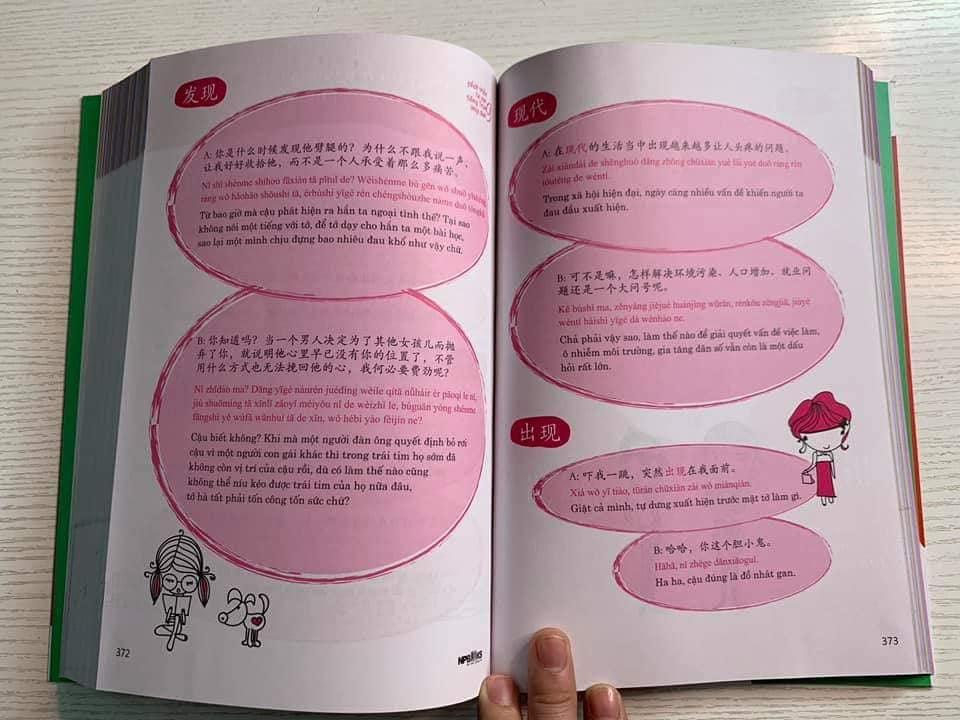 发现
A: 你是什么时候发现他劈腿的？为什么不跟我说一声，
让我好好收拾他，而不是一个人承受着那么多痛苦。
Nǐ shì shénme shíhou fāxiàn tā pītuǐ de? Wèishénme bù gēn wǒ shuō yīshēng,
ràng wǒ hǎohǎo shōushi tā, érbùshì yīgè rén chéngshòuzhe nàme duō tòngkǔ.
Từ bao giờ mà cậu phát hiện ra hắn ta ngoại tình thế? Tại sao
không nói một tiếng với tớ, để tớ dạy cho hắn ta một bài học,
sao lại một mình chịu đựng bao nhiêu đau khổ như vậy chứ.
B: 你知道吗？当一个男人决定为了其他女孩儿而抛
弃了你，就说明他心里早已没有你的位置了，不管
用什么方式也无法挽回他的心，我何必要费劲呢？
Nǐ zhīdào ma? Dāng yīgè nánrén juédìng wèile qítā nǚháir ér pāoqì le nǐ,
jiù shuōmíng tā xīnlǐ zǎoyǐ méiyǒu nǐ de wèizhì le, bùguǎn yòng shénme
fāngshì yě wúfǎ wǎnhuí tā de xīn, wǒ hébì yào fèijìn ne?
Cậu biết không? Khi mà một người đàn ông quyết định bỏ rơi
cậu vì một người con gái khác thì trong trái tim họ sớm đã
không còn vị trí của cậu rồi, dù có làm thế nào cũng
không thể níu kéo được trái tim của họ nữa đâu,
tớ hà tất phải tốn công tốn sức chứ?
372
NPBOOKS
现代
A: 在现代的生活当中出现越来越多让人头疼的问题。
Zài xiàndài de shēnghuó dāng zhōng chūxiàn yuè lái yuè duō ràng rén
tóuténg de wèntí.
Trong xã hội hiện đại, ngày càng nhiều vấn đề khiến người ta
đau đầu xuất hiện.
B: 可不是嘛，怎样解决环境污染、人口增加、就业问
题还是一个大问号呢。
Kě bùshì ma, zěnyàng jiějué huánjìng wūrǎn, rénkǒu zēngjiā, jiùyè
wèntí háishì yīgè dà wènhào ne.
Chả phải vậy sao, làm thế nào để giải quyết vấn đề việc làm,
ô nhiễm môi trường, gia tăng dân số vẫn còn là một dấu
hỏi rất lớn.
出现
A: 吓我一跳，突然出现在我面前。
Xià wǒ yī tiào, tūrán chūxiàn zài wǒ miànqián.
Giật cả mình, tự dưng xuất hiện trước mặt tớ làm gì.
B: 哈哈，你这个胆小鬼。
Hāhā, nǐ zhège dǎnxiǎoguǐ.
Ha ha, cậu đúng là đồ nhát gan.
373